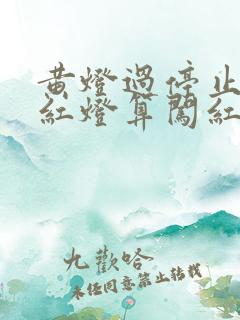 黄燈過停止
紅燈算闖紅
九歡哈
未經同意禁止轉載